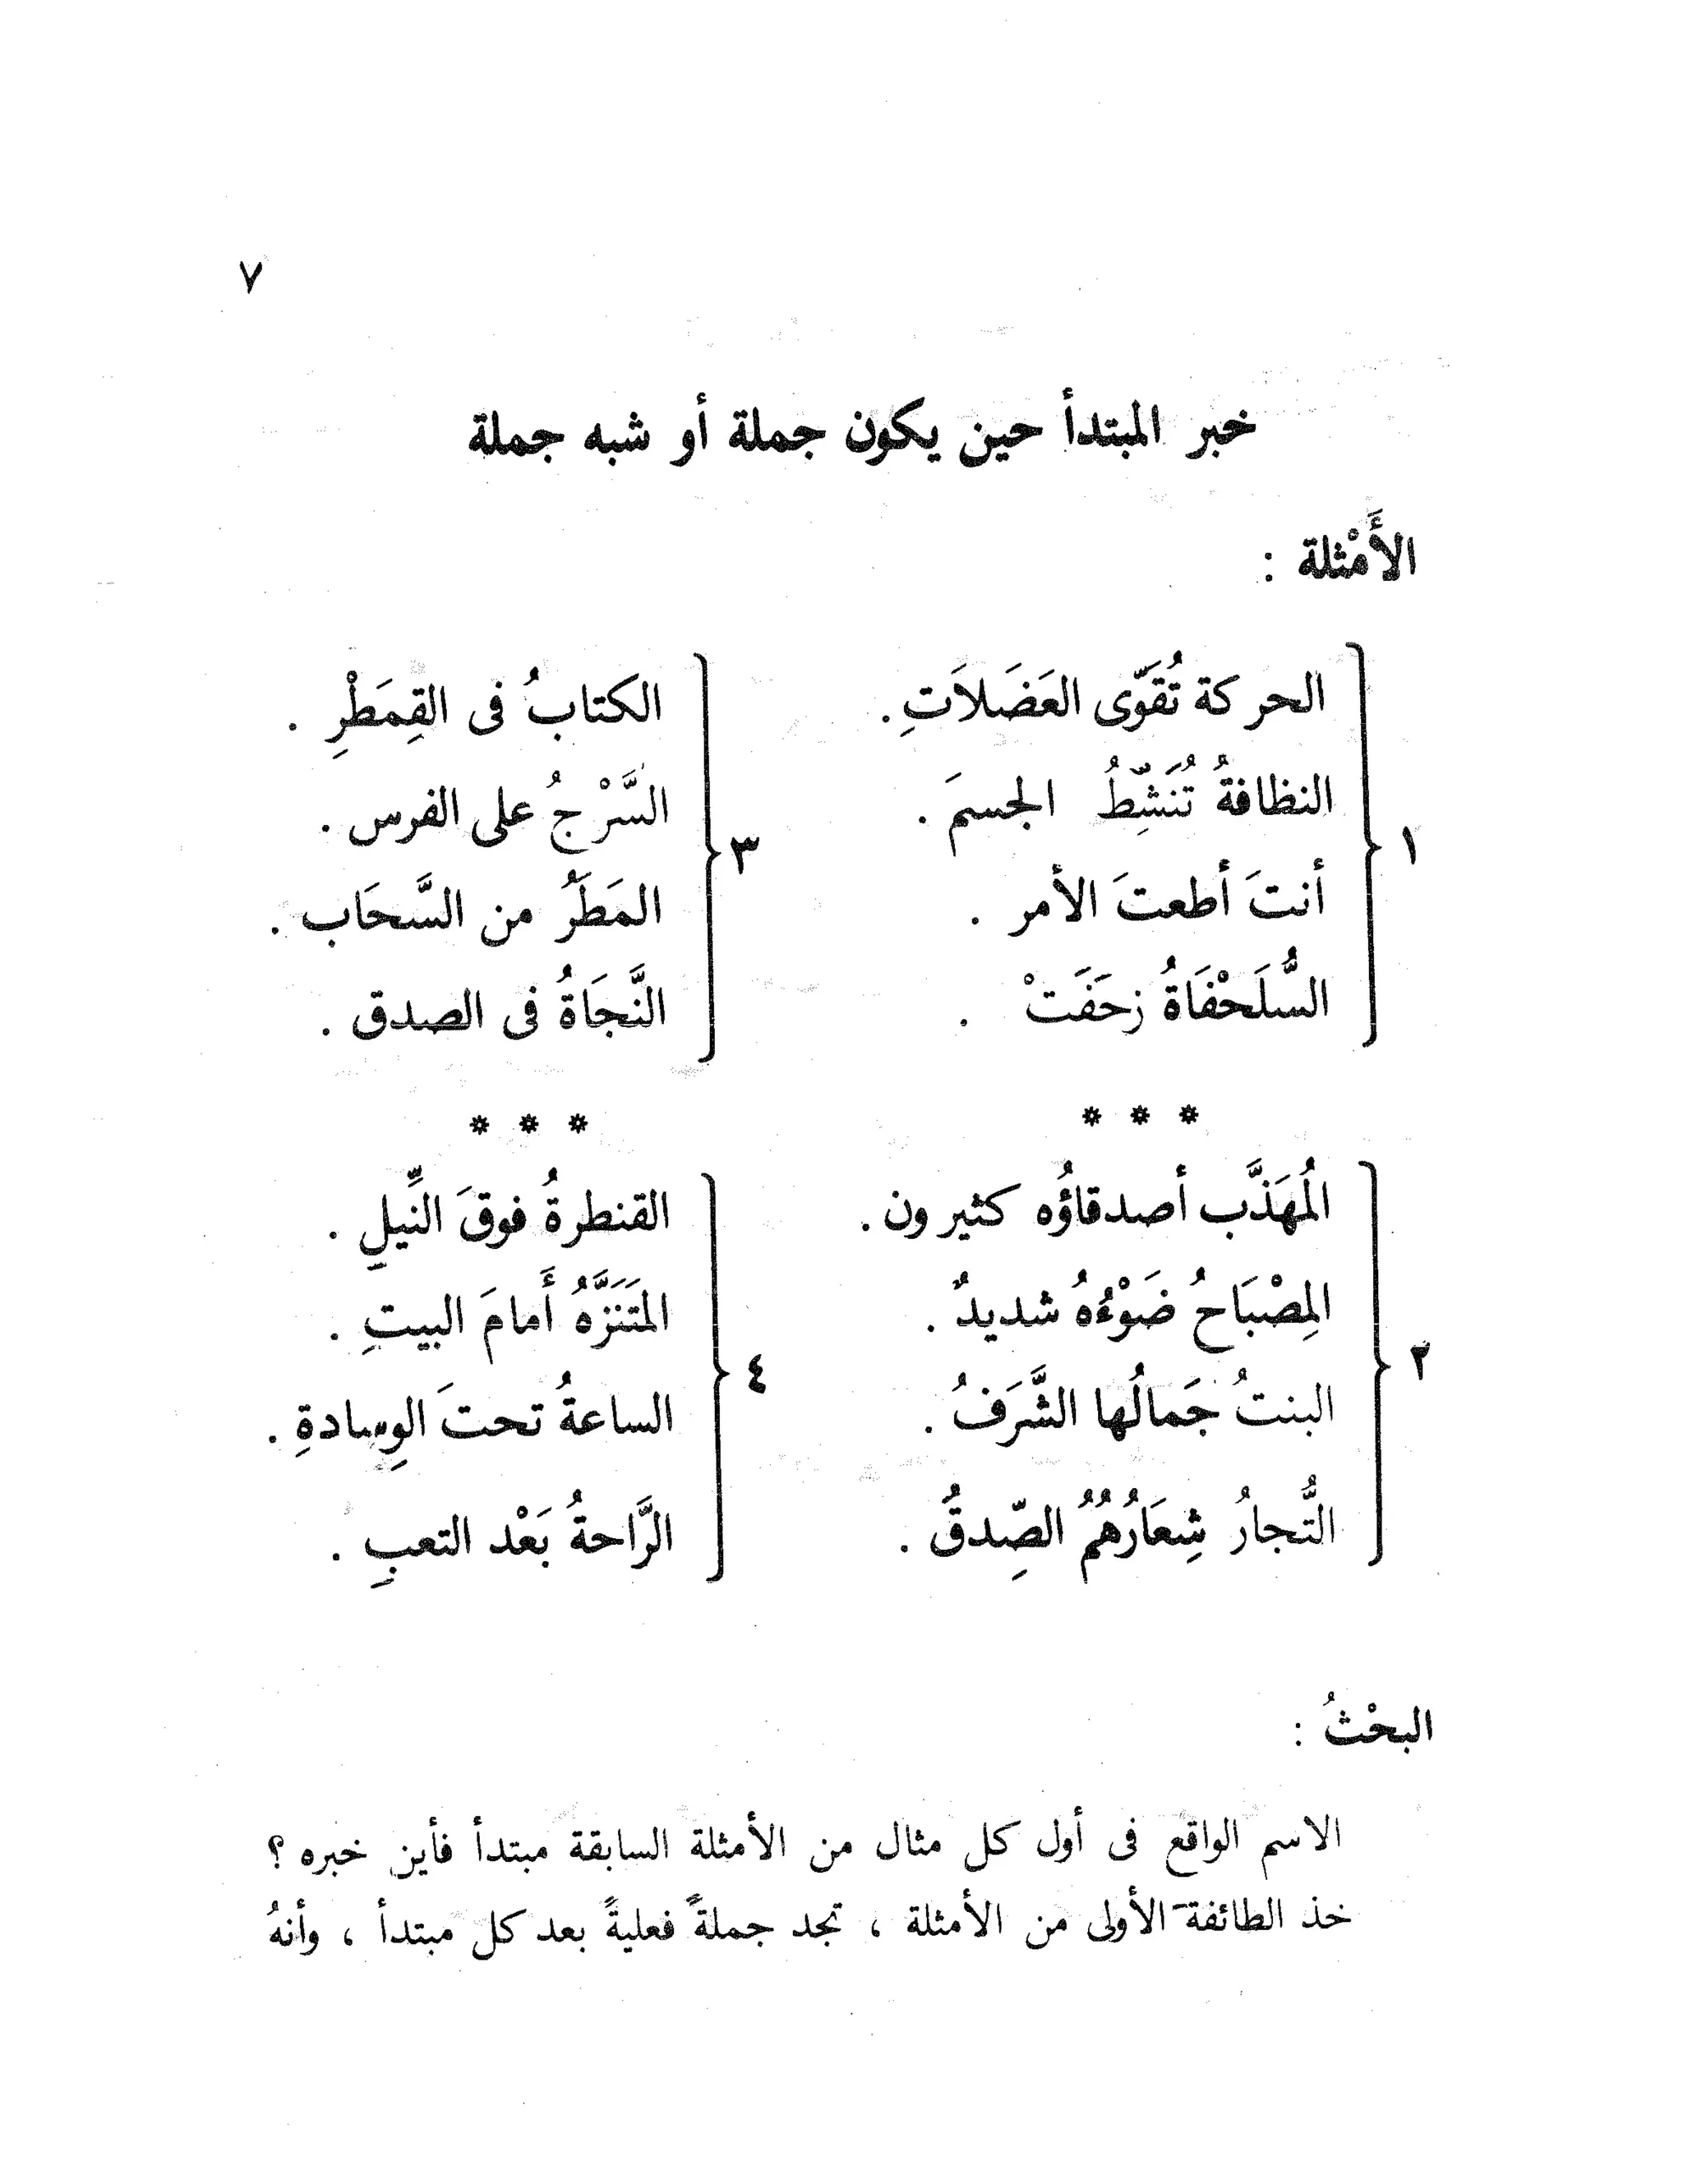 ٧
خبر المبتدأ حين يكون جملة أو شبه جملة
الأَمْثلة :
١
الحركة تُقَوّى العَضَلاَتِ .
النظافةُ تُنَشِّطُ الجسمَ .
أنتَ أطعتَ الأمر .
السُّلَحْفَاةُ زحَفَتْ .
٣
الكتابُ فى القِمَطْرِ .
السَّرْجُ على الفرس .
المَطَرُ من السَّحَاب .
النَّجَاةُ فى الصدق .
* * *
* * *
٢
المُهَذَّب أصدقاؤُه كثيرون .
المِصْبَاحُ ضَوْءُهُ شديدٌ .
البنتُ جَمالُها الشَّرَفُ .
التُّجارُ شِعَارُهُمُ الصِّدقُ .
٤
القنطرةُ فوقَ النِّيلِ .
المَتَنَزَّهُ أَمامَ البيتِ .
الساعةُ تحتَ الوِسادةِ .
الرَّاحةُ بَعْد التعبِ .
البحْثُ :
الاسم الواقع فى أول كل مثال من الأمثلة السابقة مبتدأ فأين خبره ؟
خذ الطائفة الأولى من الأمثلة ، تجد جملةً فعليةً بعد كل مبتدأ ، وأنهُ